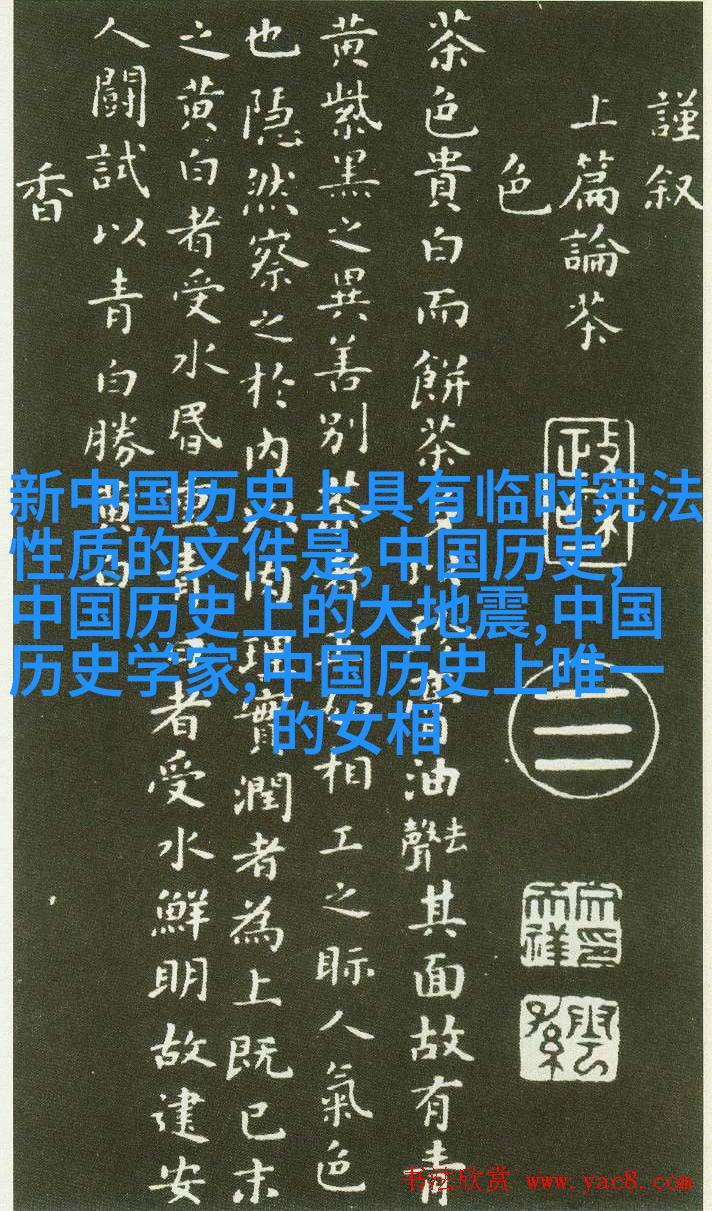 謹叙
上篇論茶
色
茶色貴白而餅茶多以珍膏油去聲其面故有青
黄紫黑之異善别茶者正如相工之眎人氣色
也隠然察之於内以肉理實潤者為上既已末
之黄白者受水昬重青白者受水鮮明故建安
人鬭試以青白勝黄白
香
新中国历史上具有临时宪法
性质的文件是,中国历史,
中国历史上的大地震,中国
历史学家,中国历史上唯一
的女相
三
书法欣赏 www.yac8.com